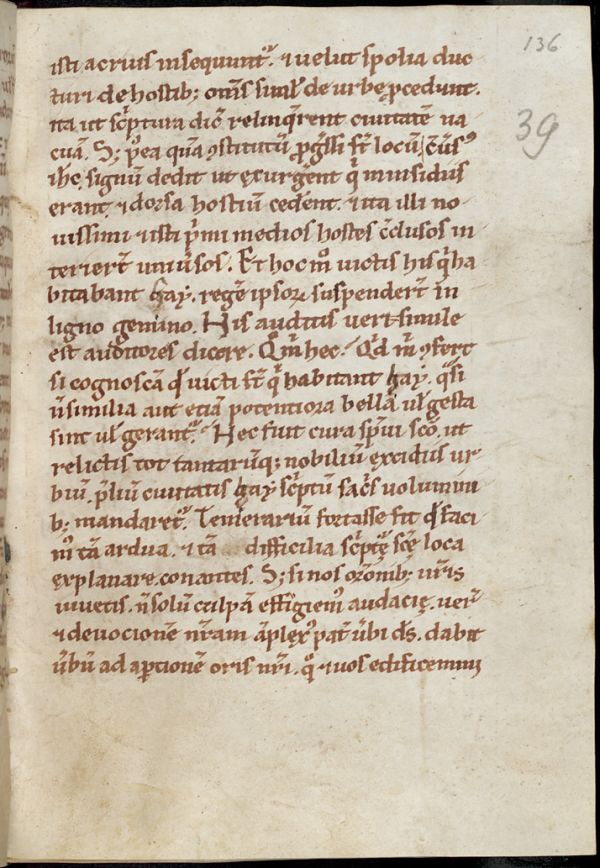 136
39
isti acrius insequunt᷑. ⁊ uelut spolia duc
turi de hostib; om̄s simul de urbe ꝓcedunt.
ita ut sc̓ptura dic̄ relinq̓rent ciuitatē ua
cuā. S; p̓ea quā ꝯstitutū ꝓg̓ssi st̄ locū, c̄u̓sꝰ
ih̄c signū dedit ut exurgerent q̓ in insidiis
erant. ⁊ dorsa hostiū cederent. ⁊ ita illi no
uissimi ⁊ isti p̓mi medios hostes c̄clusos in
teriert̄ uniu̓sos. Et hoc m̊ uictis his q̓ ha
bitabant hay. regē ipsoꝝ suspendert̄ in
ligno gemino. His auditis uerisimile
est auditores dicere. Q̊m̄ hec? Q̓d m̓ ꝯfert
si cognoscā qd̓ uicti st̄ q̓ habitant hay. q̓si
ū similia aut etiā potentiora bella uł gesta
sint uł gerant᷑. Hec fuit cura sp̄ui sc̄o. ut
relictis tot tantarūq; nobiliū excidiis ur
biū. p̓liū ciuitatis hay sc̓ptū sac̓s uolumini
b; mandaret᷑. Temerariū fortasse fit qd̓ faci
mꝰ tā ardua. ⁊ tā difficilia sc̓ptę sc̄ę loca
explanare conantes. S; si nos or̄onib; ur̄is
iuuetis. ñ solū culpā effugiemꝰ audacię. uer᷑
⁊ deuocionē nr̄am āplexꝰ pat̓ u̓bi ds̄. dabit
u̓bū ad aꝑtionē oris nr̄i. q̊ ⁊ uos edificemini